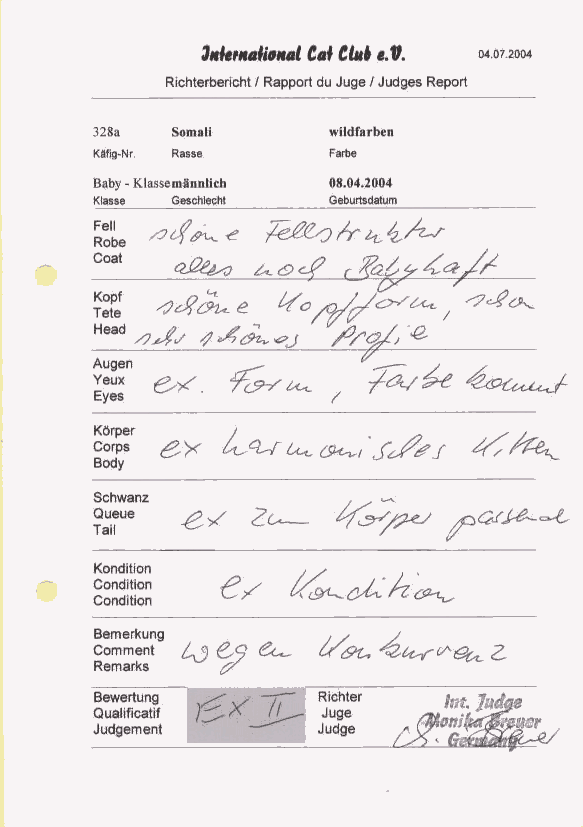 International Cat Club e.V. 04.07.2004
Richterbericht / Rapport du Juge / Judges Report
328a Somali wildfarben
Käfig-Nr. Rasse Farbe
Baby - Klasse männlich 08.04.2004
Klasse Geschlecht Geburtsdatum
Fell
Robe
Coat
schöne Fellstruktur
alles noch Babyhaft
Kopf
Tete
Head
schöne Kopfform, schon
sehr schönes Profie
Augen
Yeux
Eyes
ex. Form, Farbe kommt
Körper
Corps
Body
ex harmonisches Kitten
Schwanz
Queue
Tail
ex zum Körper passend
Kondition
Condition
Condition
ex Kondition
Bemerkung
Comment
Remarks
wegen Konkurrenz
Bewertung
Qualificatif
Judgement
EX II
Richter
Juge
Judge
Int. Judge
Monika Breuer
Germany